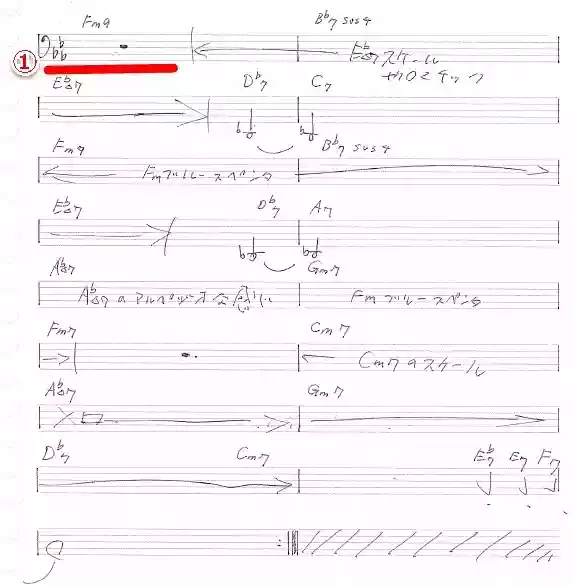 Fm9 B♭7 sus4
①
E♭△7スケール
+クロマチック
E♭△7 D♭7 C7
Fm9 B♭7 sus4
Fmブルースペンタ
E♭△7 D♭7 A7
A♭△7 Gm7
A♭△7のアルペジオ Fmブルースペンタ
Fm7 Cm7
Cm7のスケール
A♭△7 Gm7
D♭7 Cm7 E♭7 E7 F7